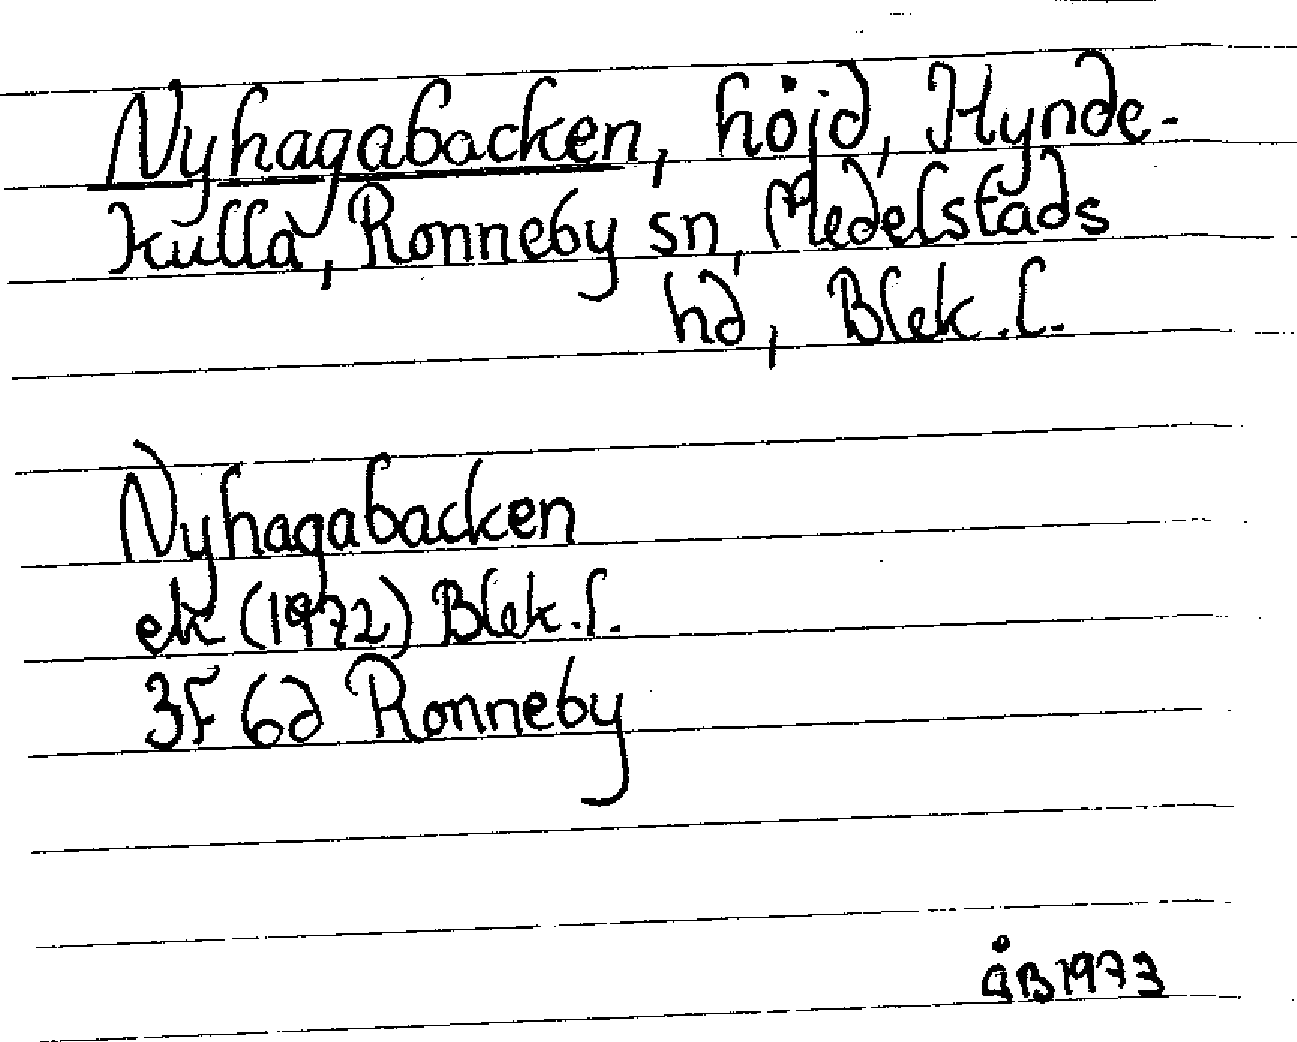 Nyhagabacken, höjd, Hynde-
kulla, Ronneby sn, Medelstads
hd, Blek. l.
Nyhagabacken
ek (1972) Blek. l.
3F 6d Ronneby
åB 1973